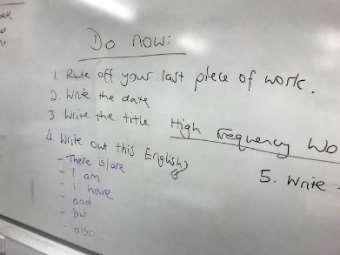 Do now:
1. Rule off your last piece of work.
2. Write the date
3 Write the title High Frequency Wo
4. Write out this English
- There is/are
- I am
- I have
- and
- but
- also
5. Write